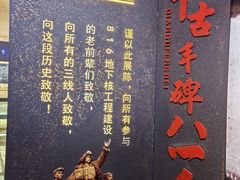 谨以此展陈，向所有参与
816地下核工程建设
的老前辈们致敬，
向所有的三线人致敬，
向这段历史致敬！
古丰碑八一